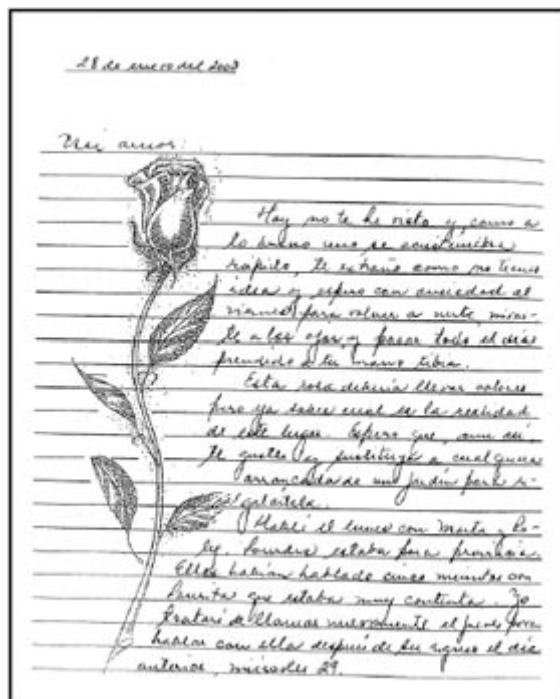 28 de enero del 2003
Mi amor:
Hoy no te he visto y, como a
lo bueno uno se acostumbra
rápido, te extraño como no tienes
idea y espero con ansiedad el
viernes para volver a verte, mirar-
te a los ojos y pasar todo el día
prendido a tu mano tibia.
Esta rosa debería llevar colores
pero ya sabes cual es la realidad
de este lugar. Espero que, aun así,
te guste y sustituya a cualquiera
arrancada de un jardín para re-
galártela.
Hablé el lunes con Marta y
Lourdes estaba para provincia.
Ellos habían hablado cinco minutos con
Laurita que estaba muy contenta. Yo
trataré de llamar nuevamente el jueves para
hablar con ella después de su regreso el día
anterior, miércoles 29.